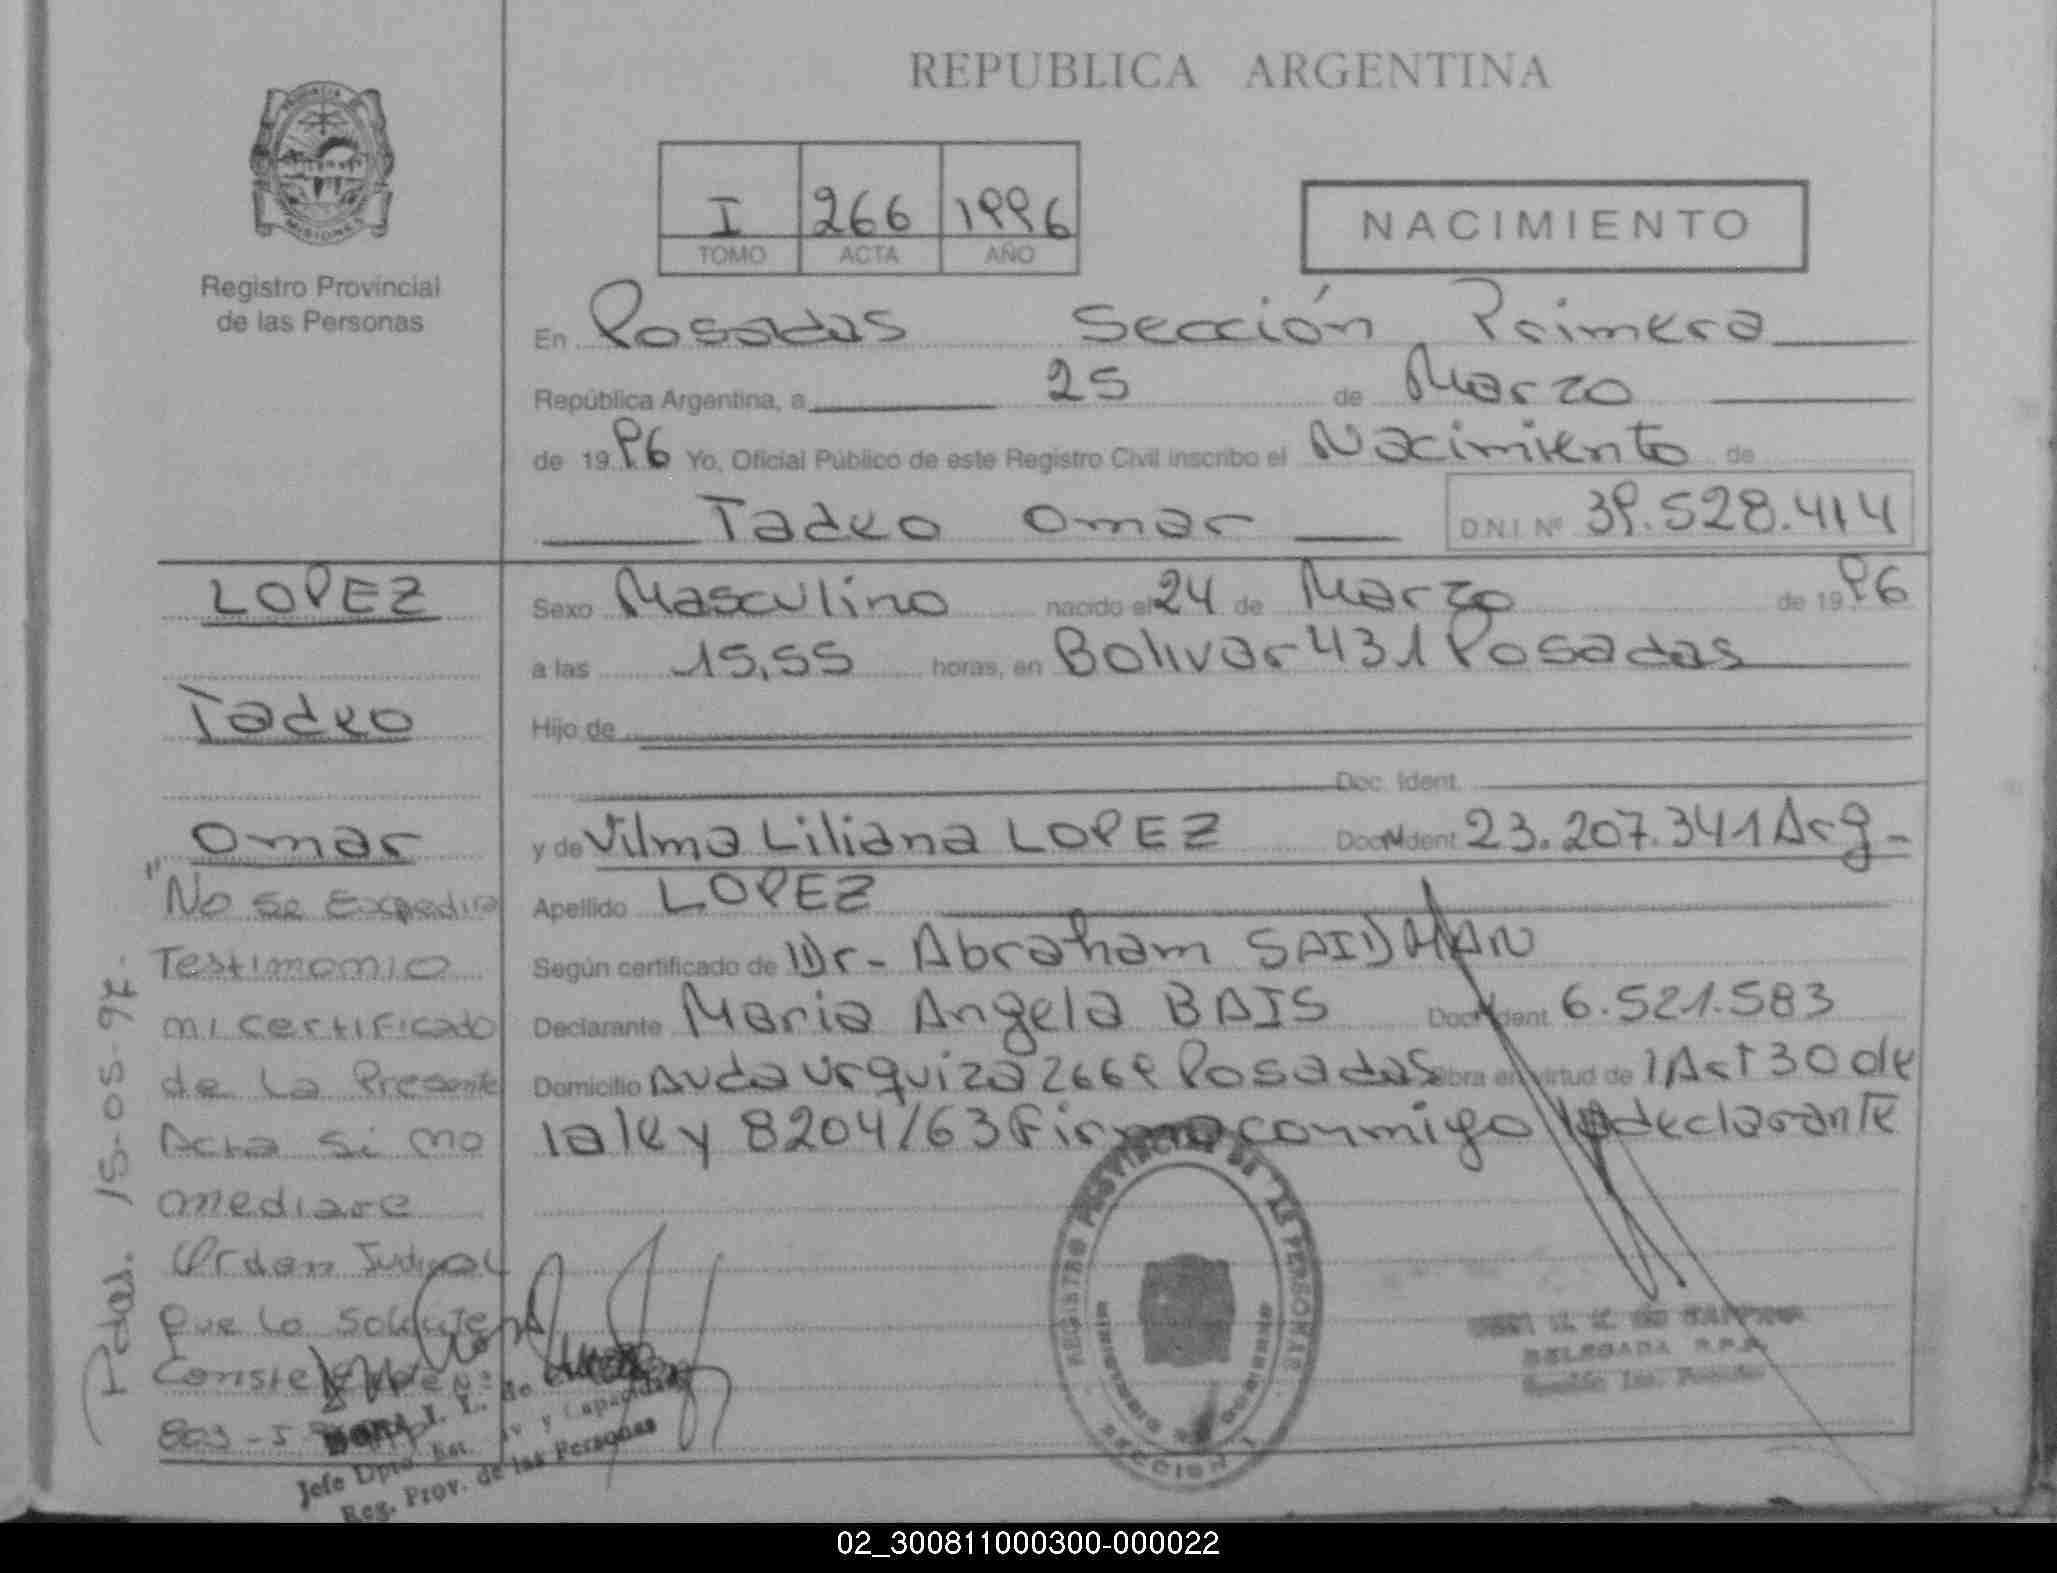 REPUBLICA ARGENTINA
PROVINCIA DE MISIONES
Registro Provincial
de las Personas
I 266 1996
TOMO ACTA AÑO
NACIMIENTO
En Posadas Sección Primera
República Argentina, a 25 de Marzo
de 1996 Yo, Oficial Público de este Registro Civil inscribo el Nacimiento de
Tadeo Omar D.N.I. Nº 39.528.414
Sexo Masculino nacido el 24 de Marzo de 1996
a las 15,55 horas, en Bolivar 431 Posadas
Hijo de
Doc. Ident.
y de Vilma Liliana LOPEZ Doc. Ident. 23.207.341 Arg.
Apellido LOPEZ
Según certificado de Dr. Abraham SAIDMAN
Declarante Maria Angela BAIS Doc. Ident. 6.521.583
Domicilio Avda Urquiza 2669 Posadas Obra en virtud de 1 Art 30 de
la ley 8204/63 Firma conmigo la declarante
LOPEZ
Tadeo
Omar
"No se Expedira
Testimonio
ni certificado
de La Presente
Acta si no
mediare
Orden Judicial
que lo solicite
803-5
Pdas. 15-05-97.
REGISTRO PROVINCIAL DE LAS PERSONAS
SECCION 1
DELEGADA R.P.P.
Sección 1ra. Posadas
I. L. de
Jefe Dpto. Est. Civ y Capacidad
Reg. Prov. de las Personas
02_300811000300-000022